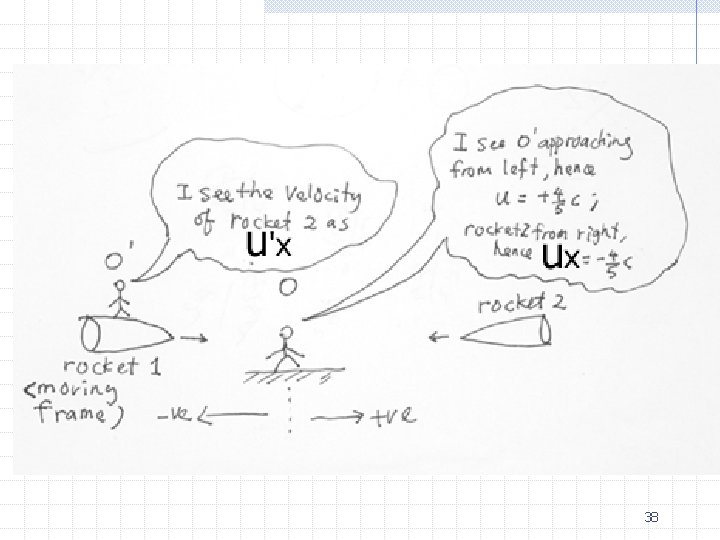 I see the velocity
of rocket 2 as
u'x
I see O' approaching
from left, hence
u = +4/5 c ;
rocket 2 from right,
hence ux = -4/5 c
O'
O
rocket 1
<moving
frame)
rocket 2
-ve
+ve
38